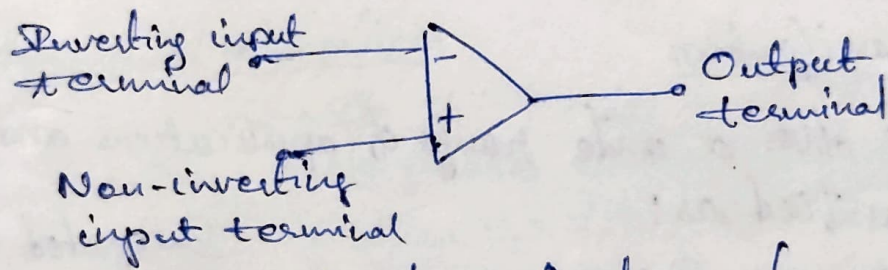 Inverting input
terminal
-
+
Output
terminal
Non-inverting
input terminal